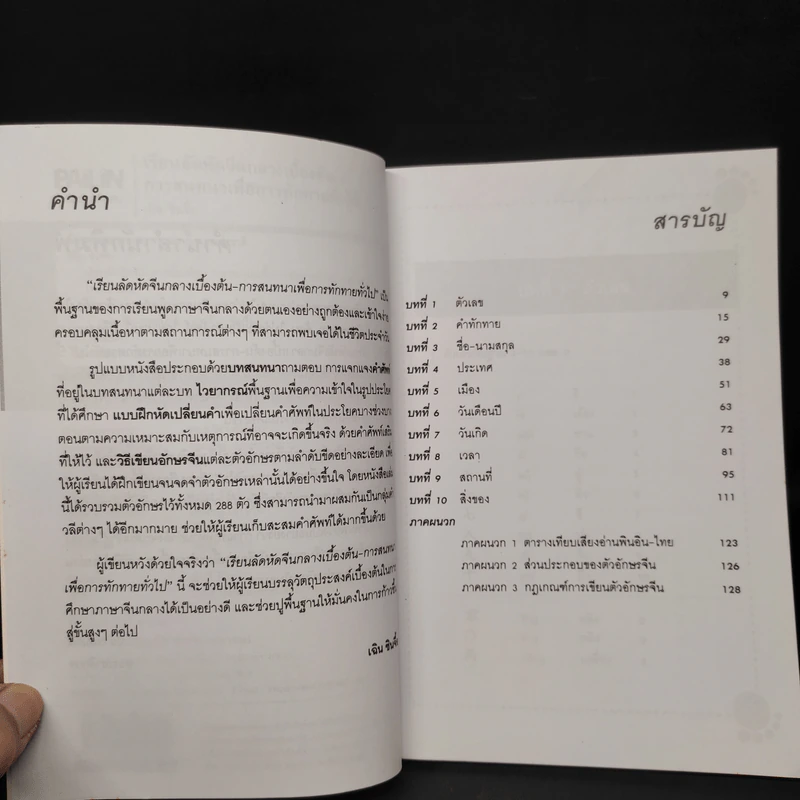 คำนำ
“เรียนลัดหัดจีนกลางเบื้องต้น-การสนทนาเพื่อการทักทายทั่วไป” เป็น
พื้นฐานของการเรียนพูดภาษาจีนกลางด้วยตนเองอย่างถูกต้องและเข้าใจง่าย
ครอบคลุมเนื้อหาตามสถานการณ์ต่างๆ ที่สามารถพบเจอได้ในชีวิตประจำวัน
รูปแบบหนังสือประกอบด้วยบทสนทนาถามตอบ การแจกแจงคำศัพท์
ที่อยู่ในบทสนทนาแต่ละบท ไวยากรณ์พื้นฐานเพื่อความเข้าใจในรูปประโยค
ที่ได้ศึกษา แบบฝึกหัดเปลี่ยนคำเพื่อเปลี่ยนคำศัพท์ในประโยคบางช่วงบาง
ตอนตามความเหมาะสมกับเหตุการณ์ที่อาจจะเกิดขึ้นจริง ด้วยคำศัพท์เสริม
ที่ให้ไว้ และวิธีเขียนอักษรจีนแต่ละตัวอักษรตามลำดับขีดอย่างละเอียด เพื่อ
ให้ผู้เรียนได้ฝึกเขียนจนจดจำตัวอักษรเหล่านั้นได้อย่างขึ้นใจ โดยหนังสือเล่ม
นี้ได้รวบรวมตัวอักษรไว้ทั้งหมด 288 ตัว ซึ่งสามารถนำมาผสมกันเป็นกลุ่มคำ
วลีต่างๆ ได้อีกมากมาย ช่วยให้ผู้เรียนเก็บสะสมคำศัพท์ได้มากขึ้นด้วย
ผู้เขียนหวังด้วยใจจริงว่า “เรียนลัดหัดจีนกลางเบื้องต้น-การสนทนา
เพื่อการทักทายทั่วไป” นี้ จะช่วยให้ผู้เรียนบรรลุวัตถุประสงค์เบื้องต้นในการ
ศึกษาภาษาจีนกลางได้เป็นอย่างดี และช่วยปูพื้นฐานให้มั่นคงในการก้าวขึ้น
สู่ขั้นสูงๆ ต่อไป
เฉิน ซินจี๋
สารบัญ
บทที่ 1 ตัวเลข 9
บทที่ 2 คำทักทาย 15
บทที่ 3 ชื่อ-นามสกุล 29
บทที่ 4 ประเทศ 38
บทที่ 5 เมือง 51
บทที่ 6 วันเดือนปี 63
บทที่ 7 วันเกิด 72
บทที่ 8 เวลา 81
บทที่ 9 สถานที่ 95
บทที่ 10 สิ่งของ 111
ภาคผนวก
ภาคผนวก 1 ตารางเทียบเสียงอ่านพินอิน-ไทย 123
ภาคผนวก 2 ส่วนประกอบของตัวอักษรจีน 126
ภาคผนวก 3 กฎเกณฑ์การเขียนตัวอักษรจีน 128